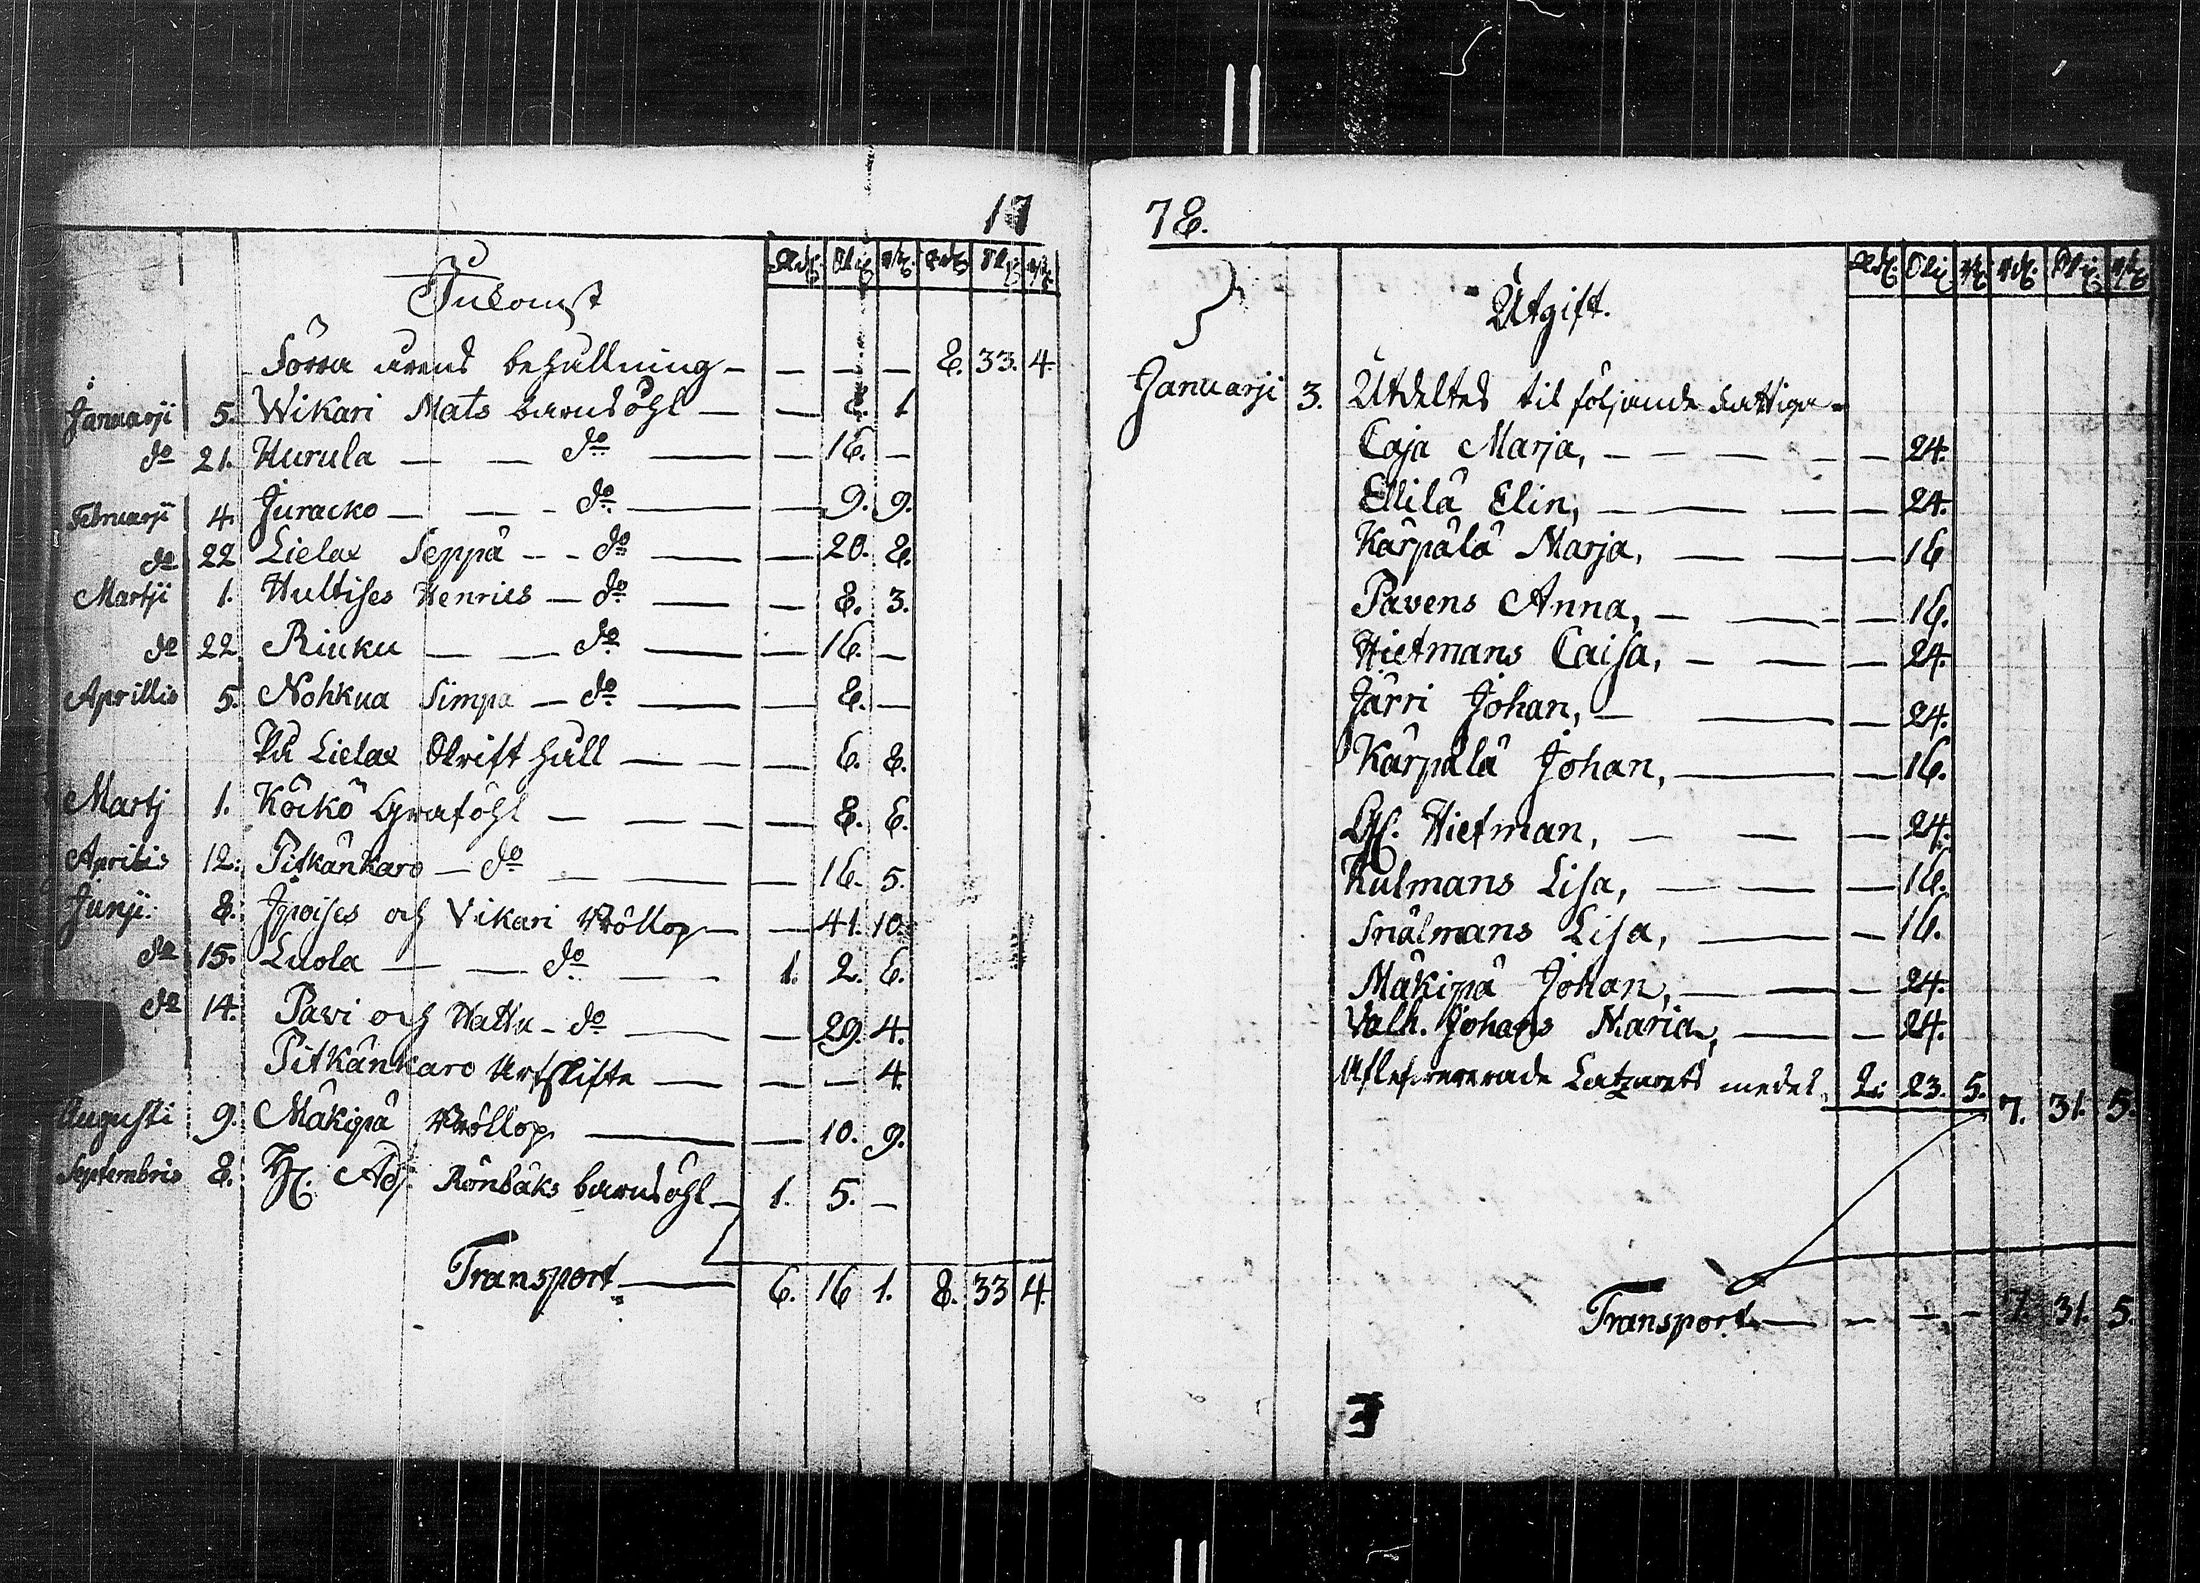 17
Inkomst
Rdr. Skig rst. Rdr Skig rst.
Förra årens behållning — — — 8. 33. 4.
Januarji 5. Wikari Mats barnsöhl — — 8. 1
do 21. Hurula — — do — — 16. —
Februarji 4. Juracko — — do — — 9. 9.
do 22 Lielax Seppä — do — — 20. 8.
Martji 1. Hultises Henrics — do — — 8. 3.
do 22 Rinku — — do — — 16. —
Aprillis 5. Nohkua Simpa — do — — 8. —
På Lielax Skrift håll — — — 6. 8.
Martj 1. Köckö Grafohl — — — 8. 6.
Aprilis 12. Pitkänkaro — do — — 16. 5.
Junji 8. Jpoises och Vikari Bröllop — — 41. 10.
do 15. Luola — — do — 1. 2. 6.
do 14. Pavi och Hattu — do — — 29. 4.
Pitkänkaro Arfskifte — — — 4.
Augusti 9. Mäkipä Bröllop — — 10. 9.
Septembris 8. H. Adj. Rönbäks barnsöhl — 1. 5. —
Transport — 6. 16 1. 8. 33 4.
78.
Utgift.
Rdr. Skig rst. Rdr. Skig. rst.
Januarji 3. Utdeltes til följande fattiga
Caja Marja, — — — 24.
Ellilä Elin, — — — 24.
Kärpälä Marja, — — — 16
Pavens Anna, — — — 16.
Hietmans Caisa, — — — 24.
Järri Johan, — — — 24.
Kärpälä Johan, — — 16.
Gl. Hietman, — — — 24.
Kulmans Lisa, — — — 16.
Snälmans Lisa, — — 16.
Mäkipä Johan, — — — 24.
Valk. Johans Maria, — — 24.
Aflefvererade Latzarets medel, 2. 23. 5. 7. 31. 5.
Transport — — — — 7. 31. 5.
3